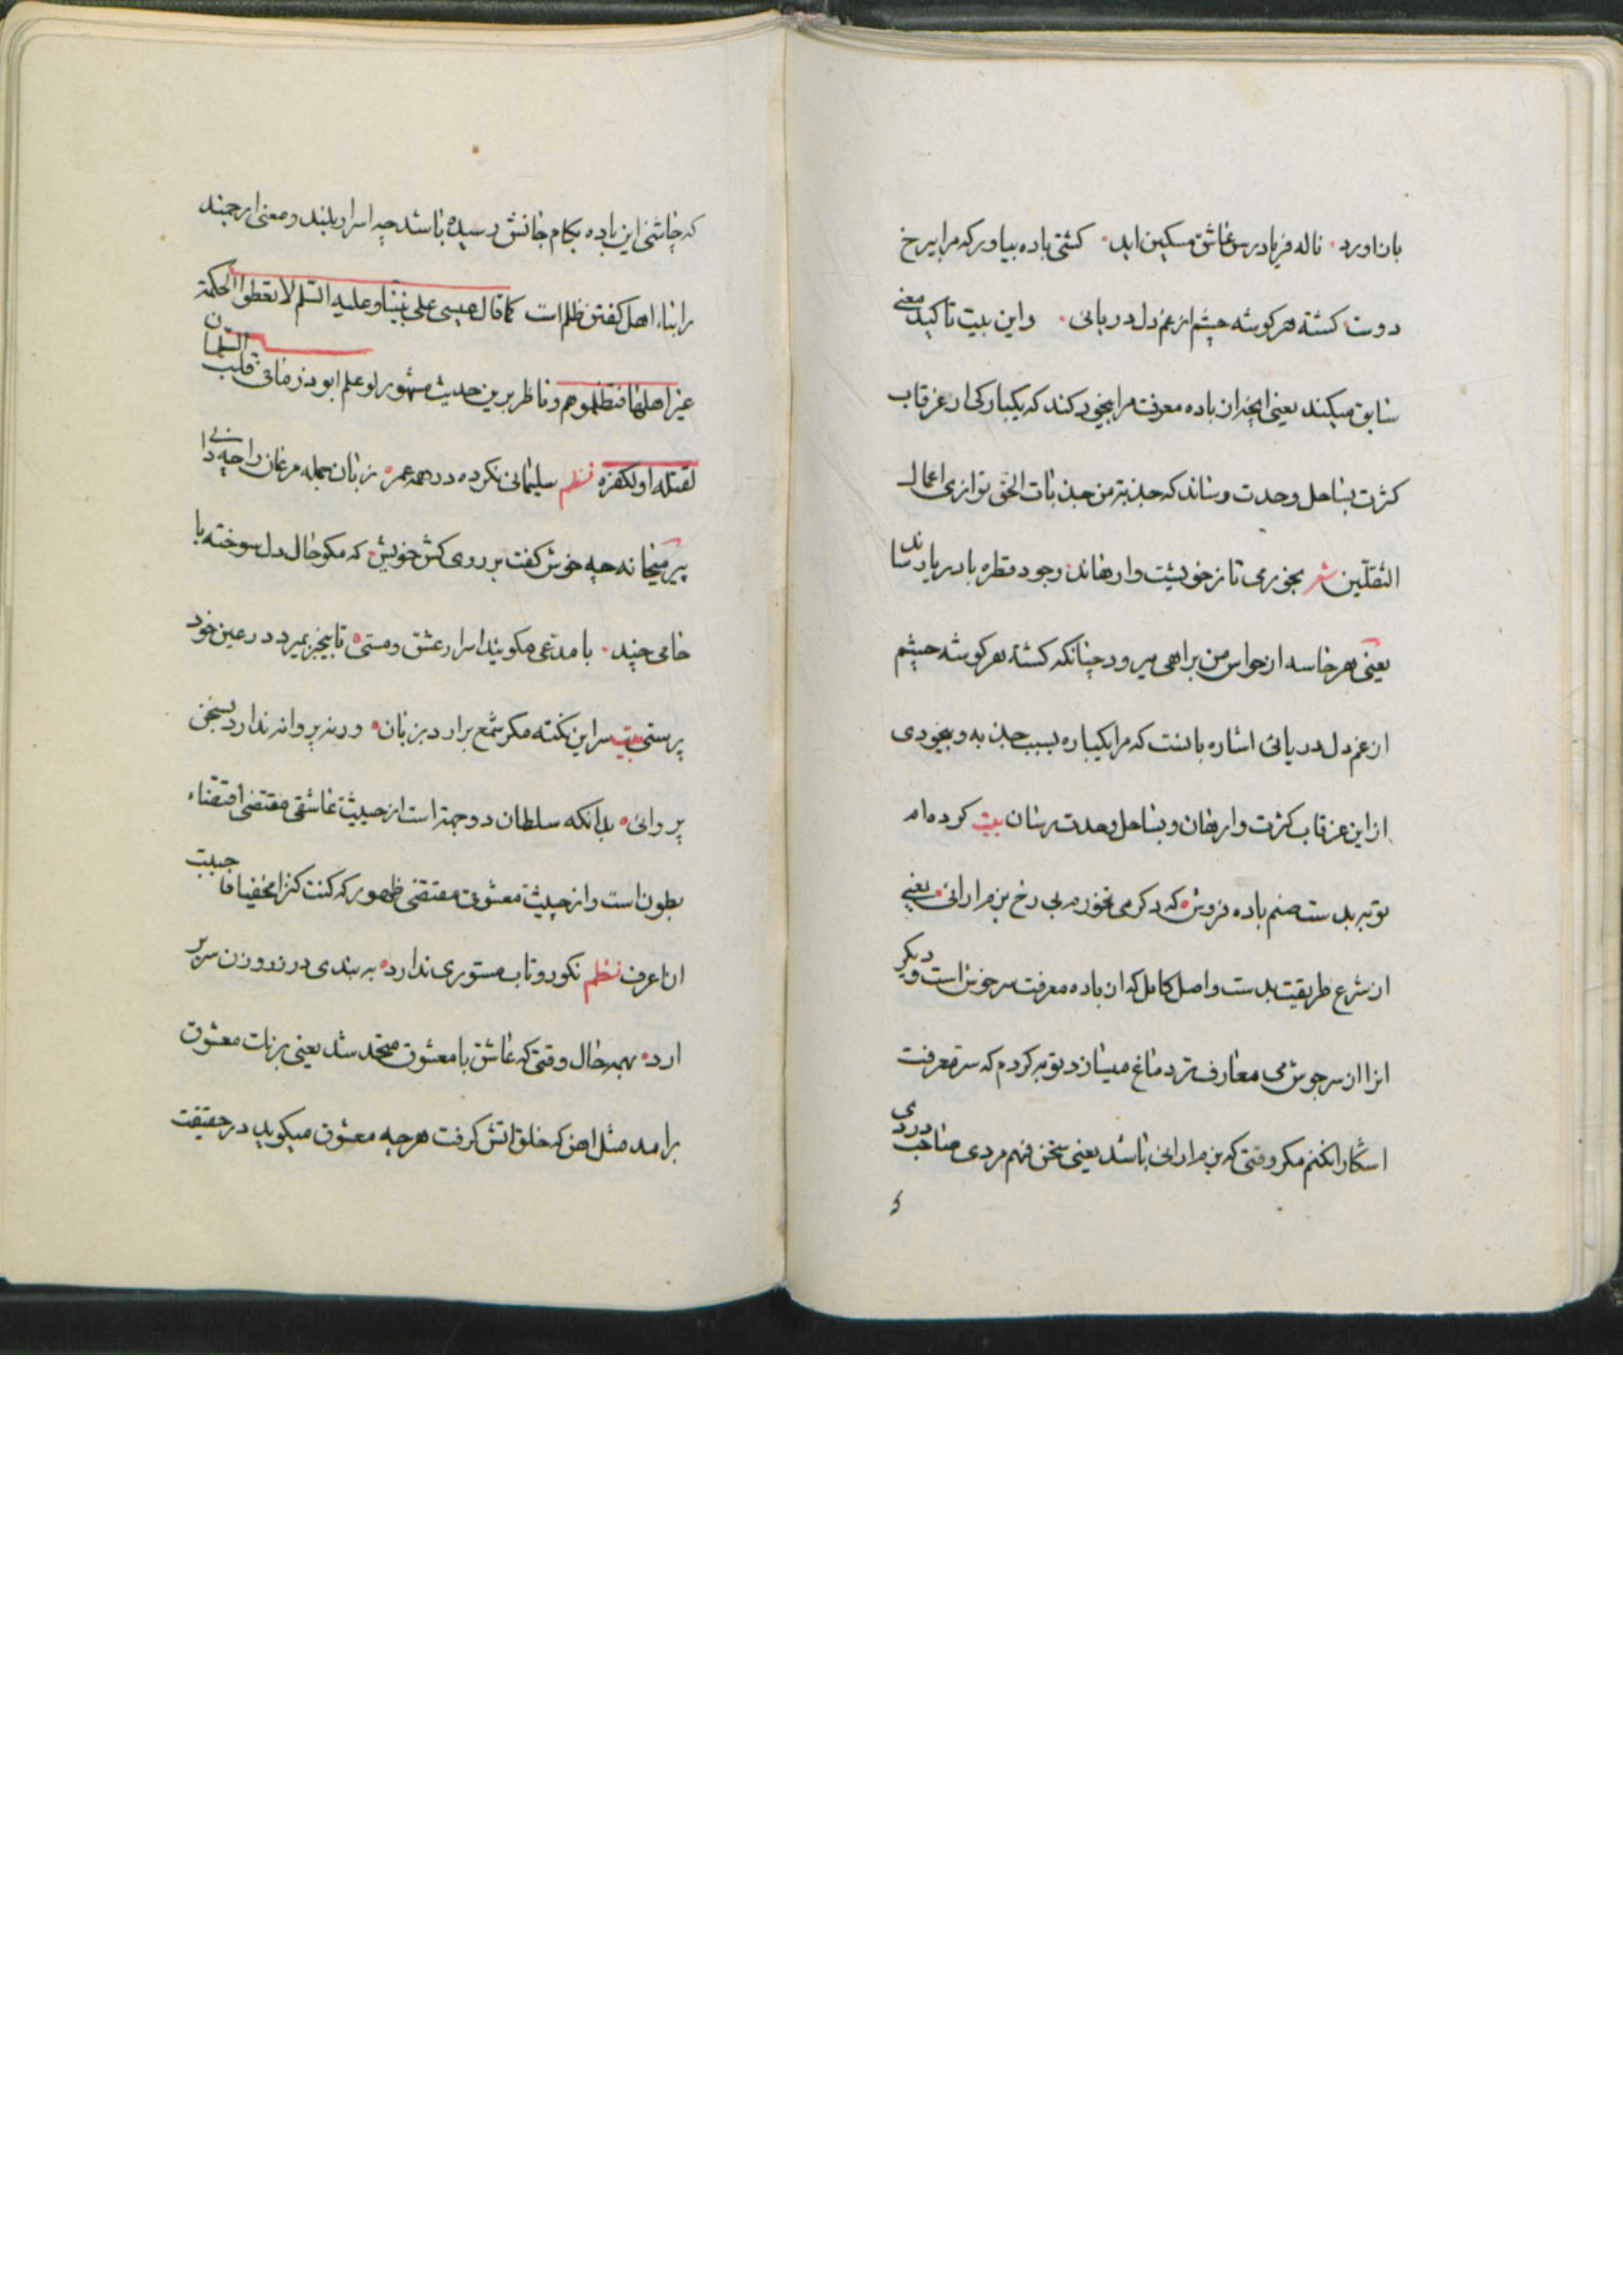 بازاورد۰ ناله فریادرس عاشق مسکین اید۰ کشتی باده بیاور که مرا بیرخ
دوست کشته هر کوشه چشم از غم دل دریائی۰ واین بیت تاکید معنی
سابق میکند یعنی انچنان باده معرفت مرا بیخود کند که یکبارکی از غرقاب
کثرت بساحل وحدت رساند که جذبة من جذبات الحق توازی اعمال
الثقلین شعر بخور می تا ز خویشت وارهاند۰ وجود قطره با دریا رساند
یعنی هر خاسه از حواس من براهی میرود چنانکه کشته هر کوشه چشم
از غم دل دریائی اشاره بانست که مرا یکباره بسبب جذبه و بیخودی
از این غرقاب کثرت وارهان و بساحل وحدت رسان بیت کرده ام
توبه بدست صنم باده فروش۰ که دکر می نخورم بی رخ بزم ارائی۰ یعنی
از شرع طریقیت بدست واصل کامل که از باده معرفت سرخوش است و دیکر
انرا از سرجوش می معارف تر دماغ میسازد توبه کردم که سر معرفت
اشکارا نکنم مکر وقتی که بزم ارائی باشد یعنی سخن فهم مردی صاحب دردی
که چاشنی این باده بکام جانش رسیده باشد چه اسرار بلند و معنی ارجمند
را بنااهل کفتن ظلم است کما قال عیسی علی نبینا و علیه السلم لا تعطوا الحکمة
غیر اهلها فتظلموهم و ناظر برین حدیث مشهور لو علم ابوذر ما فی قلب السلمان
لقتله او لکفره نظم سلیمانی نکرده در همه عمر۰ زبان جمله مرغان را چه دانی
پیر میخانه چه خوش کفت بر روی کش خویش۰ که مکو حال دل سوخته با
خامی چند۰ با مدعی مکویید اسرار عشق و مستی۰ تا بیخبر بمیرد در عین خود
پرستی بیت سر این نکته مکر شمع برارد بزبان۰ ورنه پروانه ندارد بسخن
پروائی۰ بدانکه سلطان دو جهة است از حیثیت عاشقی مقتضی اقتضاء
بطون است و از حیثیت معشوقی مقتضی ظهور که کنت کنزا مخفیا فاحببت
ان اعرف نظم نکورو تاب مستوری ندارد۰ به بندی در ز روزن سر بر
ارد۰ بهمه حال وقتی که عاشق با معشوق متحد شد یعنی برنک معشوق
برامد مثل اهن که خلق اتش کرفت هرچه معشوق میکوید در حقیقت